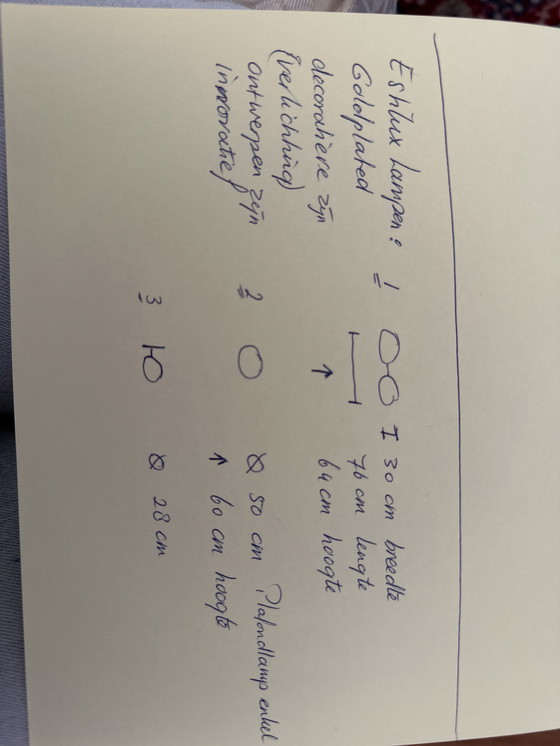 Eshlux Lampen:
Goldplated
decoratieve zijn
(verlichting)
ontwerpen zijn
innovatief
1
30 cm breedte
76 cm lengte
64 cm hoogte
2
Ø 50 cm Plafondlamp enkel
60 cm hoogte
3
Ø 28 cm